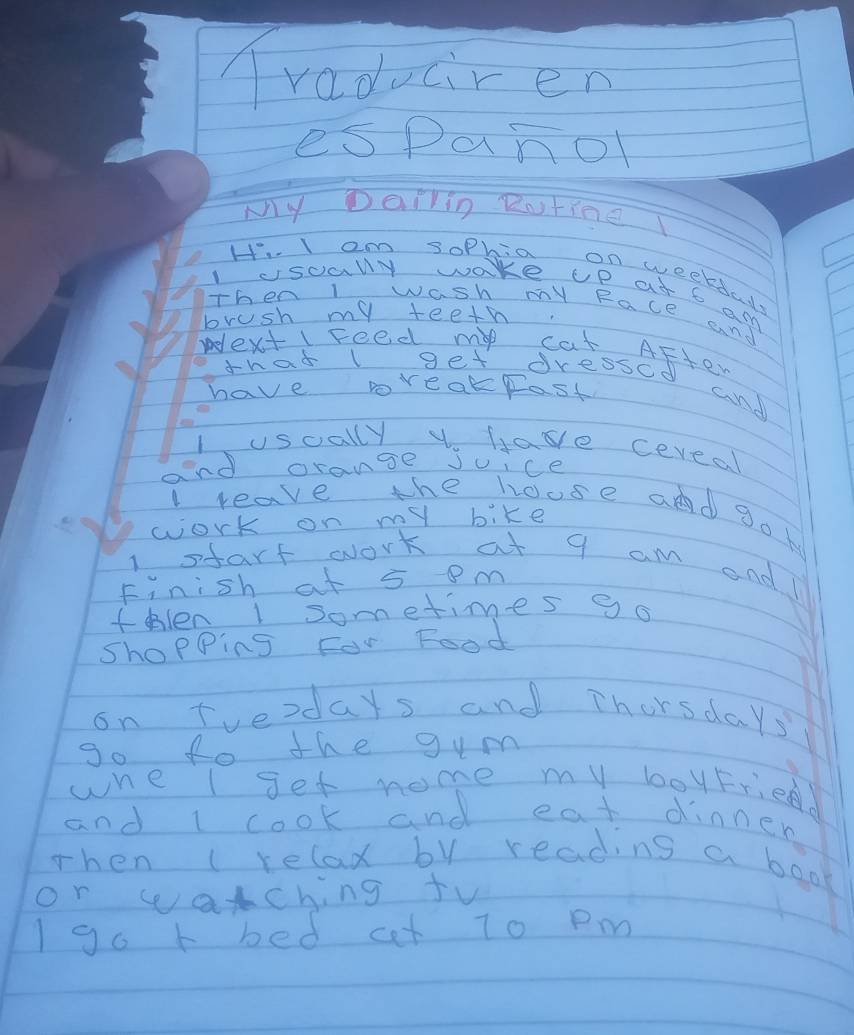 Traducir en
español
My Dailin Rutine 1
Hi. I am sophia on weekdays
I usually wake up at 6 am
Then I wash my Face and
brush my teeth.
Next I Feed my cat AFter
that I get dressed and
have breakFast
I usually y. have cereal
and orange juice
I leave the house and go to
work on my bike
I start work at 9 am and I
Finish at 5 pm
then I sometimes go
shopping For Food
on Tuesdays and Thursdays I
go to the gym
whe I get home my boyFriend
and I cook and eat dinner
Then I relax by reading a book
or watching tv
I go t bed at 10 pm